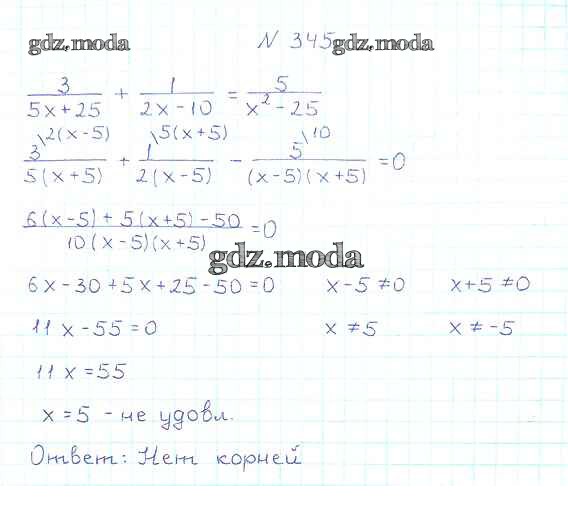 gdz.moda N 345 gdz.moda
3/(5x+25) + 1/(2x-10) = 5/(x²-25)
3\2(x-5)/(5(x+5)) + 1\5(x+5)/(2(x-5)) - 5\10/((x-5)(x+5)) = 0
(6(x-5)+5(x+5)-50)/(10(x-5)(x+5)) = 0
gdz.moda
6x-30+5x+25-50=0 x-5≠0 x+5≠0
11x-55=0 x≠5 x≠-5
11x=55
x=5 - не удовл.
Ответ: Нет корней